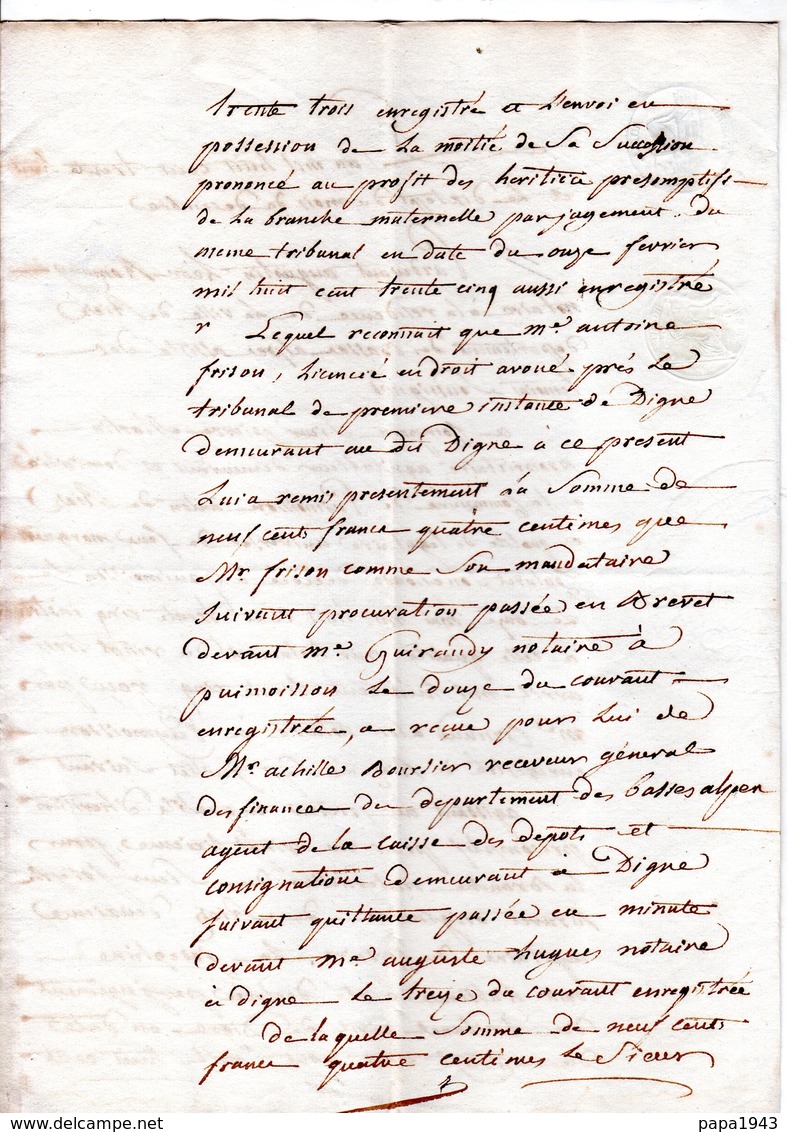 trente trois enregistré et L'envoi en
possession de La moitié de Sa Succession
prononcé au profit des heritiers presomptifs
de La branche maternelle par jugement du
meme tribunal en date du onze fevrier
mil huit cent trente cinq aussi enregistré
Lequel reconnait que me. antoine
frison, Licencié en droit avoué près Le
tribunal de premiere instance de Digne
demeurant au dit Digne à ce present
Lui a remis presentement La Somme de
neuf cents francs quatre centimes que
Mr. frison comme Son mandataire
suivant procuration passée en Brevet
devant me. Guiraudy notaire à
puimoisson Le douze du courant
enregistrée, a reçue pour Lui de
Mr. achille Boursier receveur général
des finances du departement des basses alpes
agent de la caisse des depots et
consignations demeurant à Digne
suivant quittance passée en minute
devant me auguste hugues notaire
à digne Le treize du courant enregistrée
de laquelle Somme de neuf cents
francs quatre centimes Le Sieur
papa1943